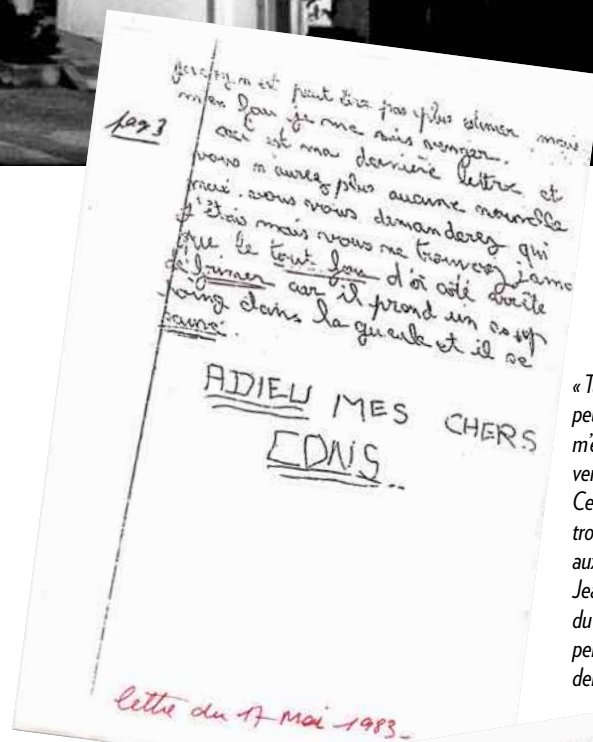 pag 3
peut être pas plus estimer mais
je me suis venger.
ceci est ma dernière lettre et
vous n'aurez plus aucune nouvelle
moi. vous vous demanderez qui
j'étais mais vous ne trouverez jama
que le tout fou d'ôt coté arrête
frimer car il prend un
poing dans la gueule et il se
sauve.
ADIEU MES CHERS
CONS..
lettre du 17 Mai 1983-
« T
peu
m'é
ven
Ce
tro
aux
Jea
du
per
der